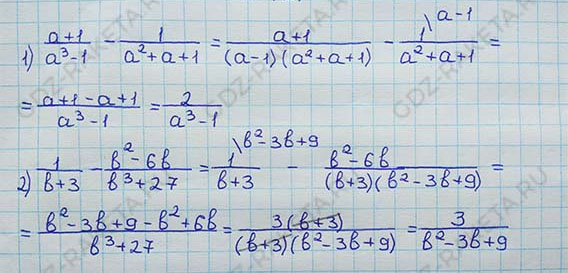 1) (a+1)/(a³-1) - 1/(a²+a+1) = (a+1)/((a-1)(a²+a+1)) - 1\a-1/(a²+a+1) =
= (a+1-a+1)/(a³-1) = 2/(a³-1)
2) 1/(b+3) - (b²-6b)/(b³+27) = 1\b²-3b+9/(b+3) - (b²-6b)/((b+3)(b²-3b+9)) =
= (b²-3b+9-b²+6b)/(b³+27) = 3(b+3)/((b+3)(b²-3b+9)) = 3/(b²-3b+9)
GDZ-RAKETA.RU